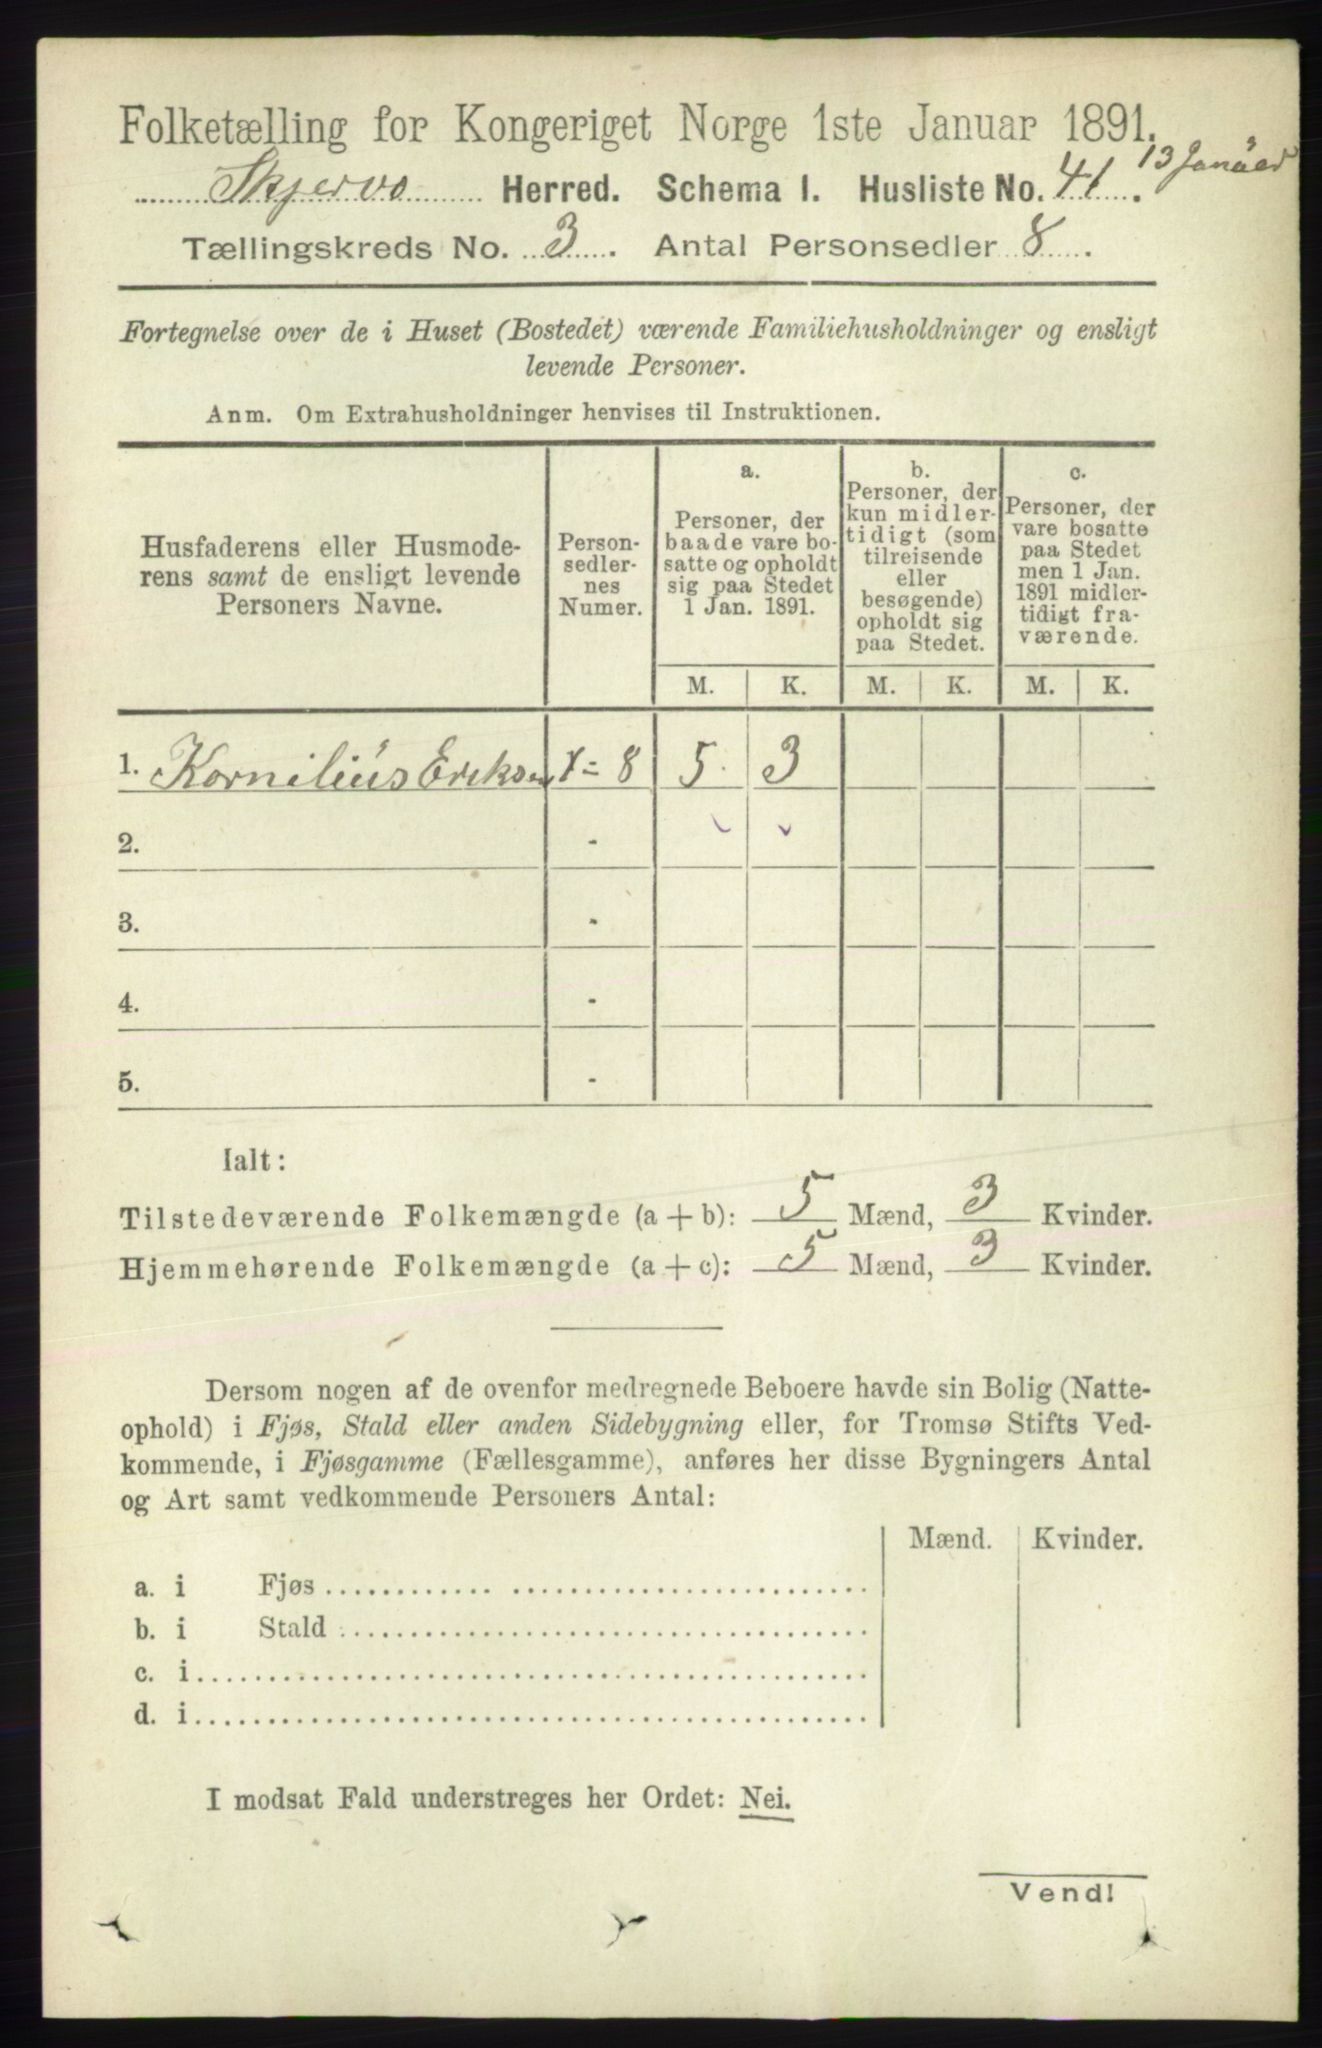 Folketælling for Kongeriget Norge 1ste Januar 1891.
13 Januar
Skjervø Herred. Schema I. Husliste No. 41.
Tællingskreds No. 3. Antal Personsedler 8.
Fortegnelse over de i Huset (Bostedet) værende Familiehusholdninger og ensligt
levende Personer.
Anm. Om Extrahusholdninger henvises til Instruktionen.
Husfaderens eller Husmode-
rens samt de ensligt levende
Personers Navne.
Person-
sedler-
nes
Numer.
a.
Personer, der
baade vare bo-
satte og opholdt
sig paa Stedet
1 Jan. 1891.
b.
Personer, der
kun midler-
tidigt (som
tilreisende
eller
besøgende)
opholdt sig
paa Stedet.
c.
Personer, der
vare bosatte
paa Stedet
men 1 Jan.
1891 midler-
tidigt fra-
værende.
M. K. M. K. M. K.
1. Kornilius Eriksen 1 - 8 5. 3
2. -
3. -
4. -
5. -
Ialt:
Tilstedeværende Folkemængde (a + b): 5 Mænd, 3 Kvinder.
Hjemmehørende Folkemængde (a + c): 5 Mænd, 3 Kvinder.
Dersom nogen af de ovenfor medregnede Beboere havde sin Bolig (Natte-
ophold) i Fjøs, Stald eller anden Sidebygning eller, for Tromsø Stifts Ved-
kommende, i Fjøsgamme (Fællesgamme), anføres her disse Bygningers Antal
og Art samt vedkommende Personers Antal:
Mænd. Kvinder.
a. i Fjøs
b. i Stald
c. i
d. i
I modsat Fald understreges her Ordet: Nei.
Vend!